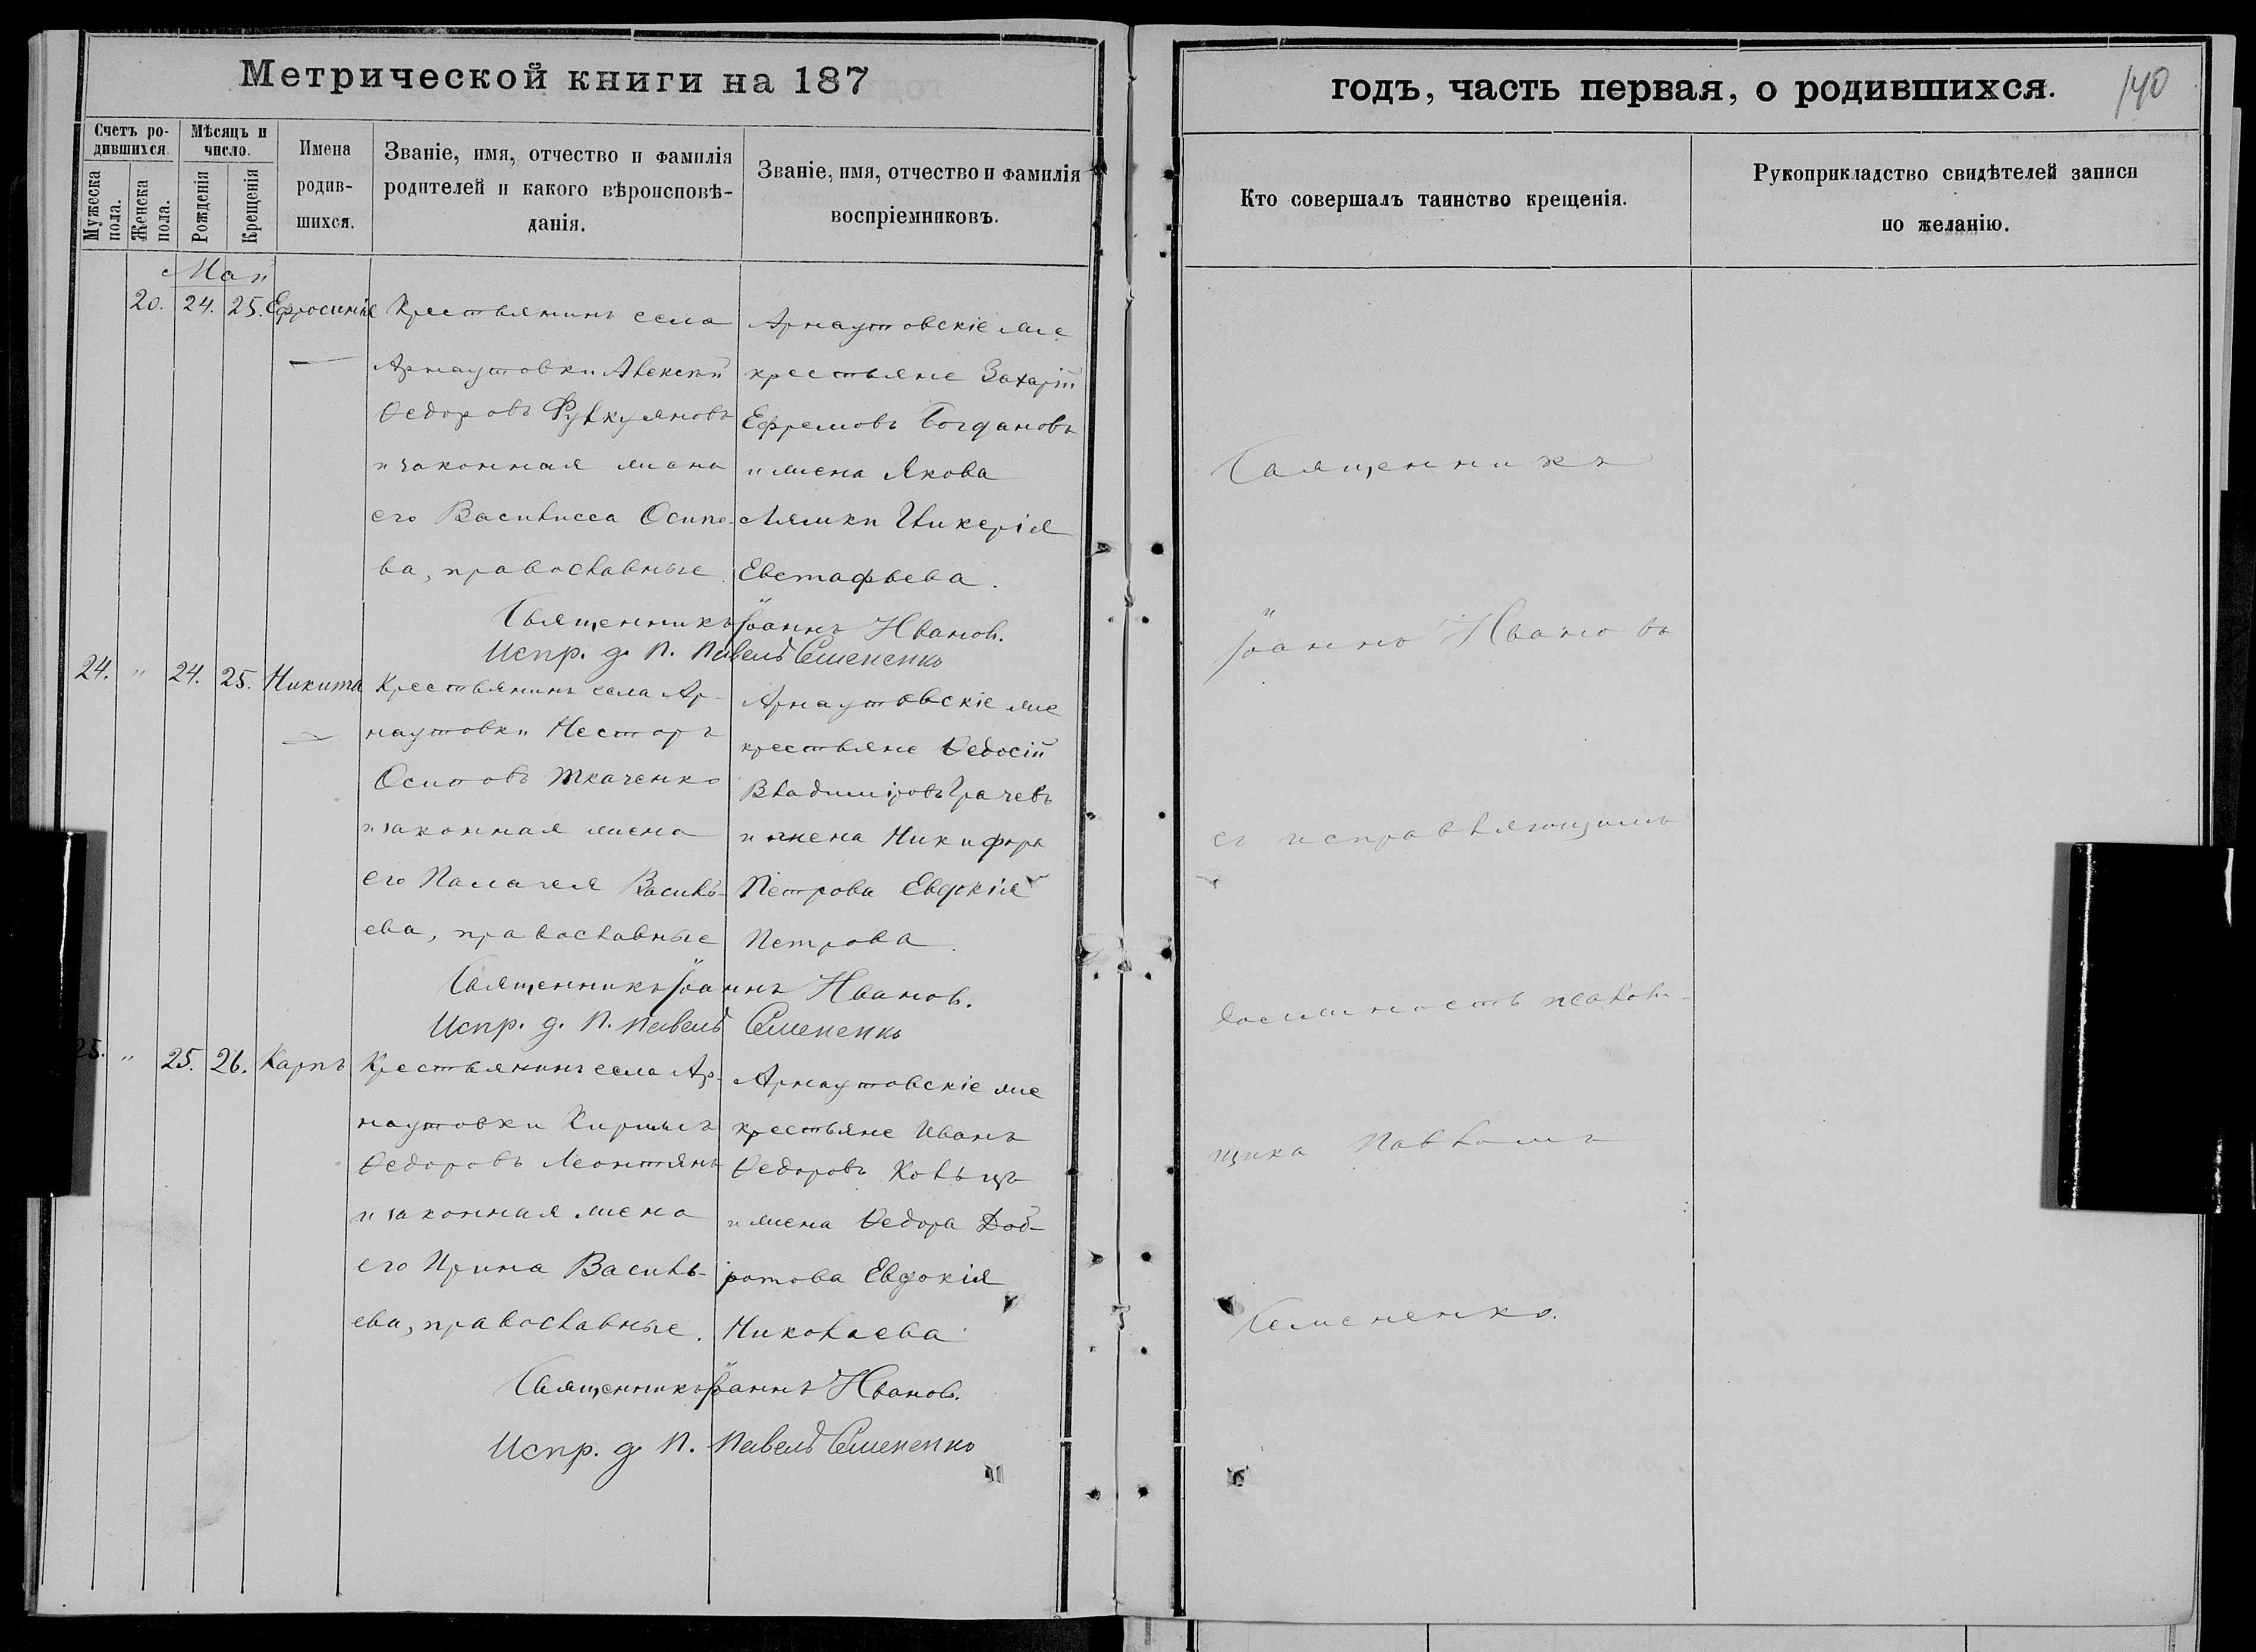 Метрической книги на 187
годъ, часть первая, о родившихся.
140
Счетъ ро-
дившихся.
Мужеска
пола.
Женска
пола.
Мѣсяцъ и
число.
Рожденія
Крещенія
Имена
родив-
шихся.
Званіе, имя, отчество и фамилія
родителей и какого вѣроисповѣ-
данія.
Званіе, имя, отчество и фамилія
воспріемниковъ.
Кто совершалъ таинство крещенія.
Рукоприкладство свидѣтелей записи
по желанію.
Май
20. 24. 25. Ефросинія
Крестьянинъ села
Арнаутовки Алексѣй
Ѳедоровъ
и законная жена
его Василисса Осипо-
ва, православные.
Арнаутовскіе же
крестьяне Захарій
Ефремовъ Богдановъ
и жена Якова
Гликерія
Евстафьева.
Священникъ Іоаннъ Иванов.
Испр. д. П. Павелъ Семененко
24. " 24. 25. Никита
Крестьянинъ села Ар-
наутовки Несторъ
Осиповъ Ткаченко
и законная жена
его Палагея Василь-
ева, православные
Арнаутовскіе же
крестьяне Ѳедосій
Владиміровъ Грачевъ
и жена Никифора
Петрова Евдокія
Петрова.
Священникъ Іоаннъ Иванов.
Испр. д. П. Павелъ Семененко
25. " 25. 26. Карпъ
Крестьянинъ села Ар-
наутовки Кириллъ
Ѳедоровъ Леонтянъ
и законная жена
его Ирина Василь-
ева, православные.
Арнаутовскіе же
крестьяне Иванъ
Ѳедоровъ
и жена Ѳедора Доб-
ротова Евдокія
Николаева
Священникъ Іоаннъ Иванов.
Испр. д. П. Павелъ Семененко
Священникъ
Іоаннъ Ивановъ
съ исправляющимъ
должность псалом-
щика Павломъ
Семененко.